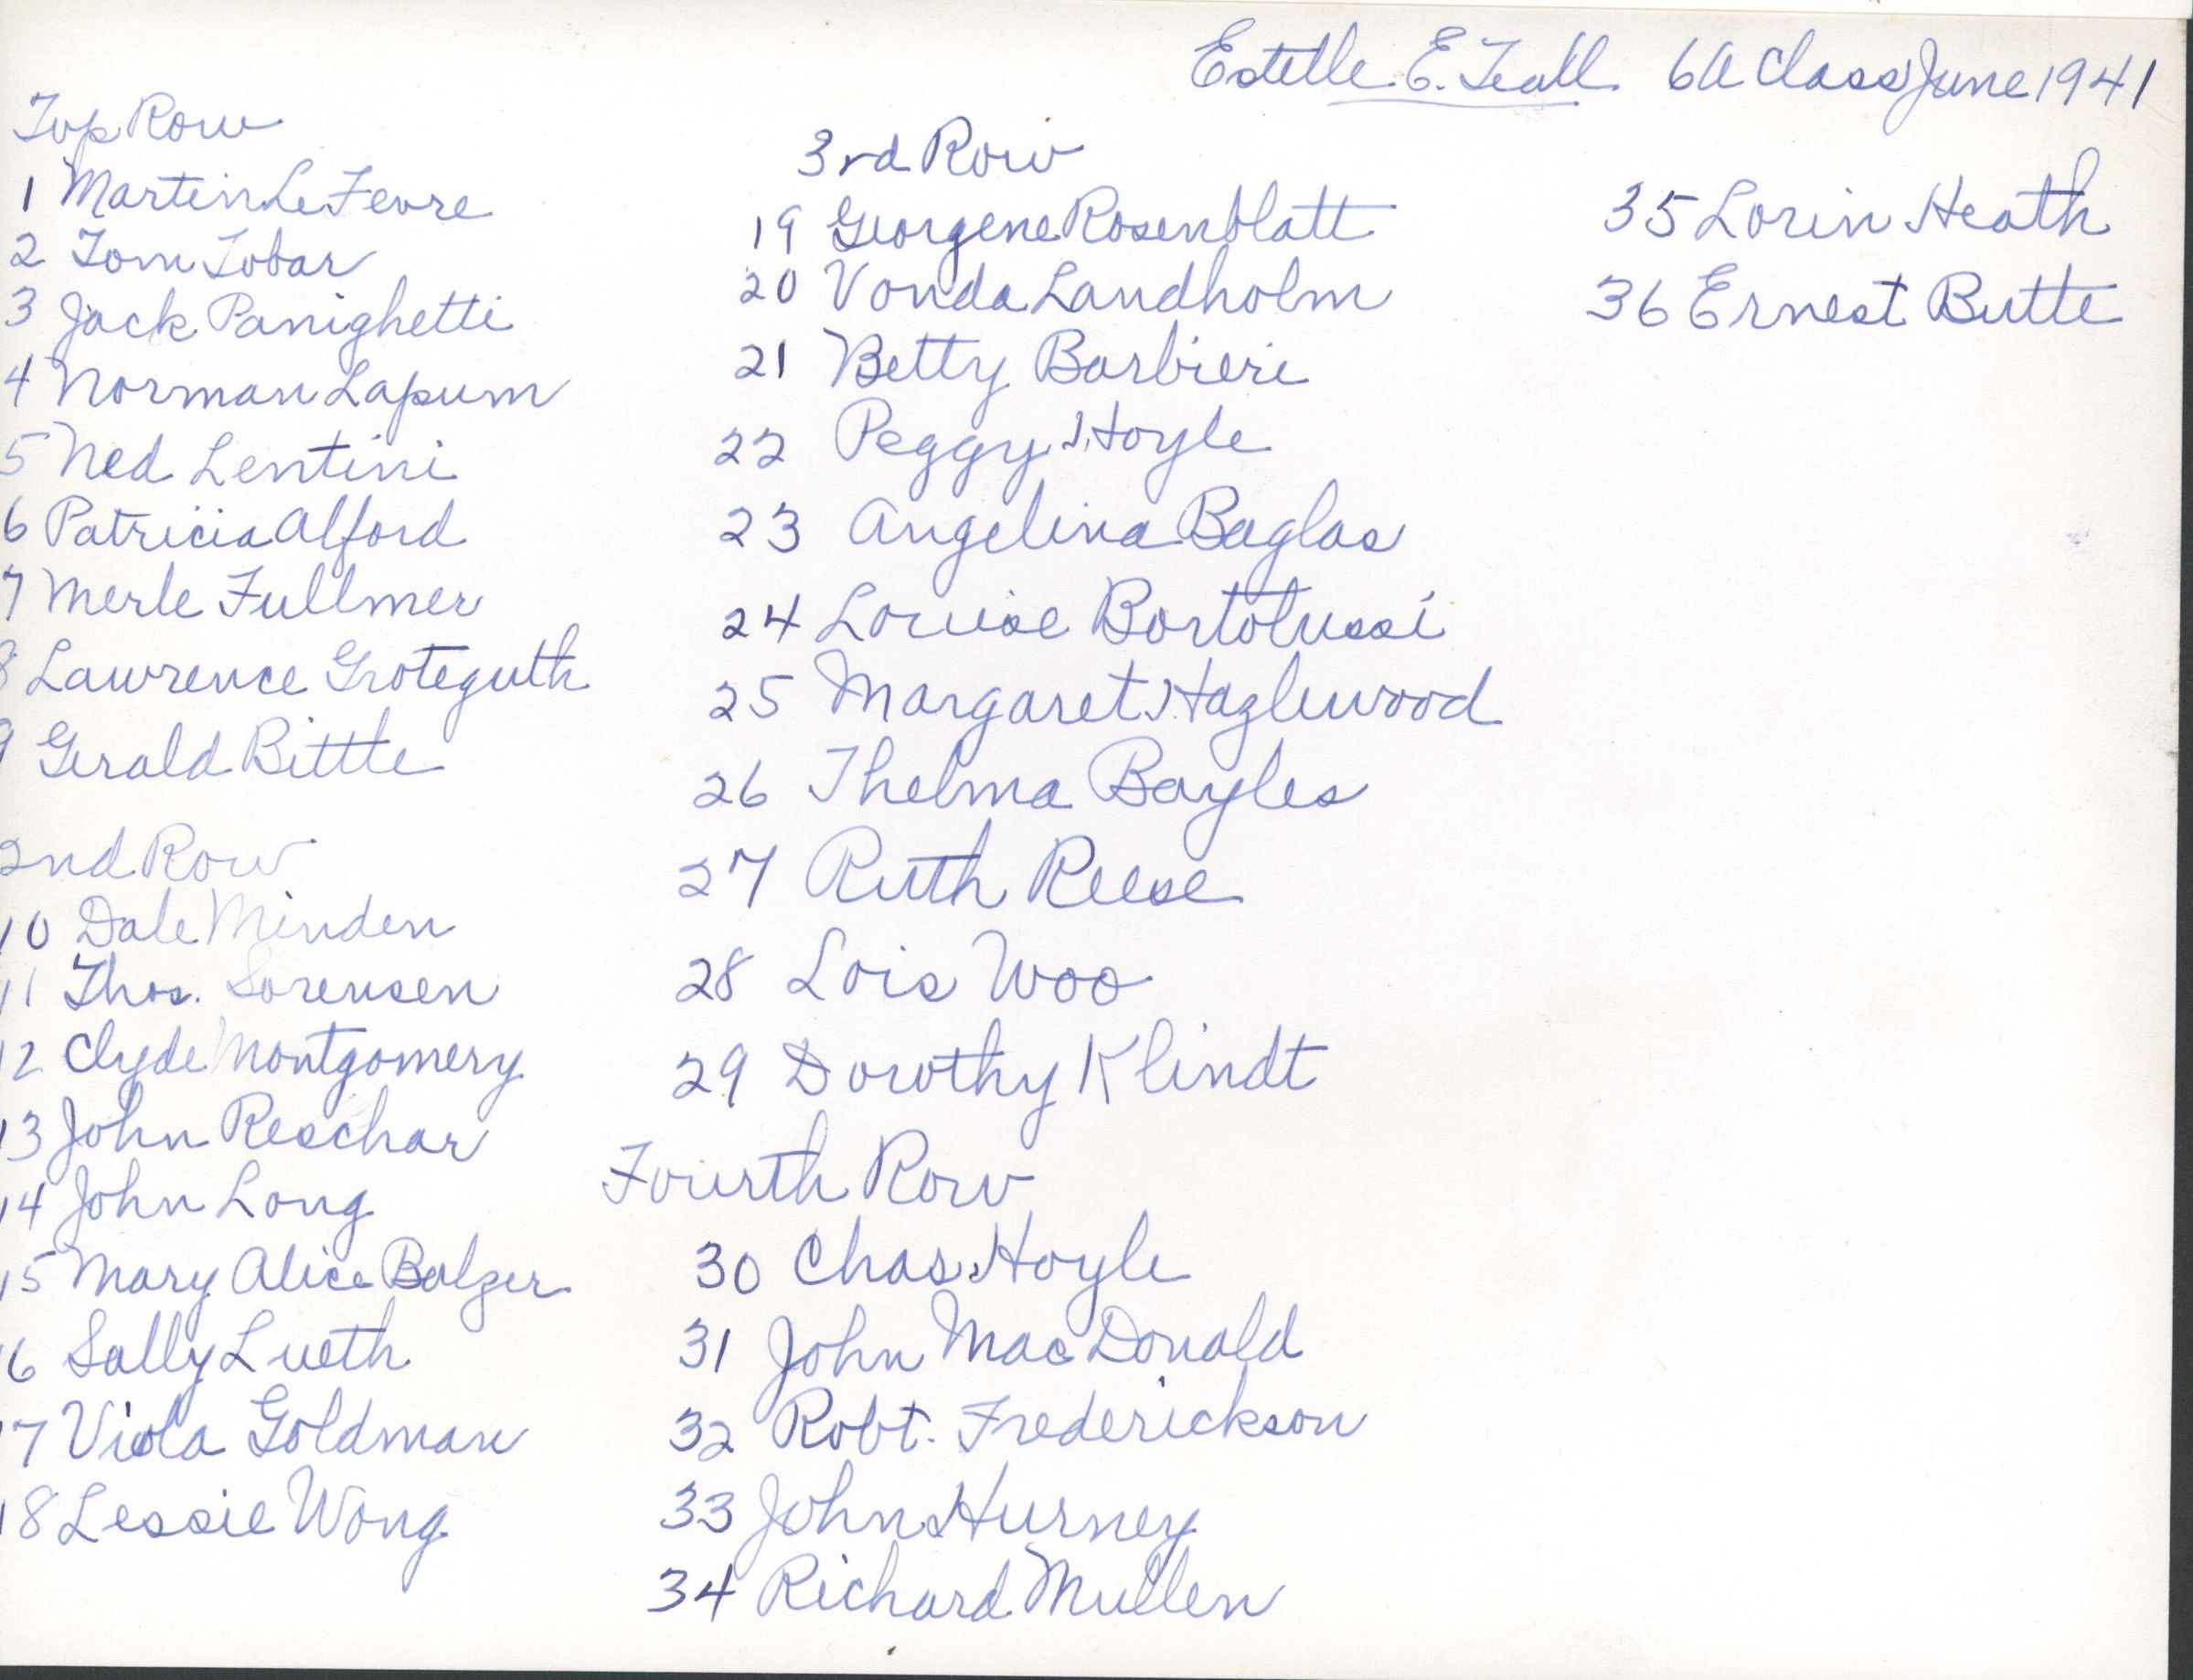 Estelle E. Teall 6A Class June 1941
Top Row
1 Martin LeFevre
2 Tom Tobar
3 Jack Panighetti
4 Norman Lapum
5 Ned Lentini
6 Patricia Alford
7 Merle Fullmer
8 Lawrence Groteguth
9 Gerald Bittle
2nd Row
10 Dale Minden
11 Thos. Sorensen
12 Clyde Montgomery
13 John Reschar
14 John Long
15 Mary Alice Balzer
16 Sally Lueth
17 Viola Goldman
18 Lessie Wong
3rd Row
19 Georgene Rosenblatt
20 Vonda Landholm
21 Betty Barbieri
22 Peggy Hoyle
23 Angelina Baglas
24 Louise Bortolussi
25 Margaret Hazlewood
26 Thelma Bayles
27 Ruth Reese
28 Lois Woo
29 Dorothy Klindt
Fourth Row
30 Chas. Hoyle
31 John MacDonald
32 Robt. Frederickson
33 John Hurney
34 Richard Mullen
35 Lorin Heath
36 Ernest Butte